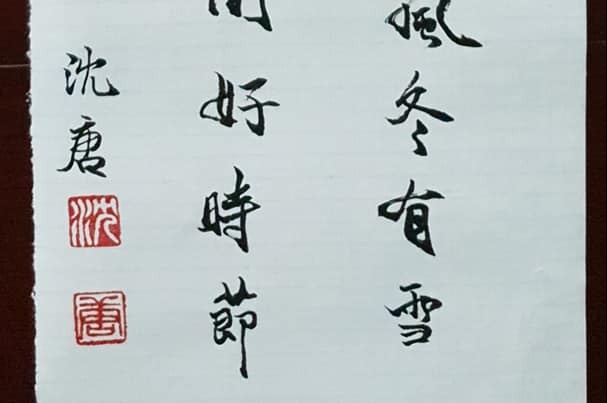 風冬有雪
間好時節
沈唐
沈
唐